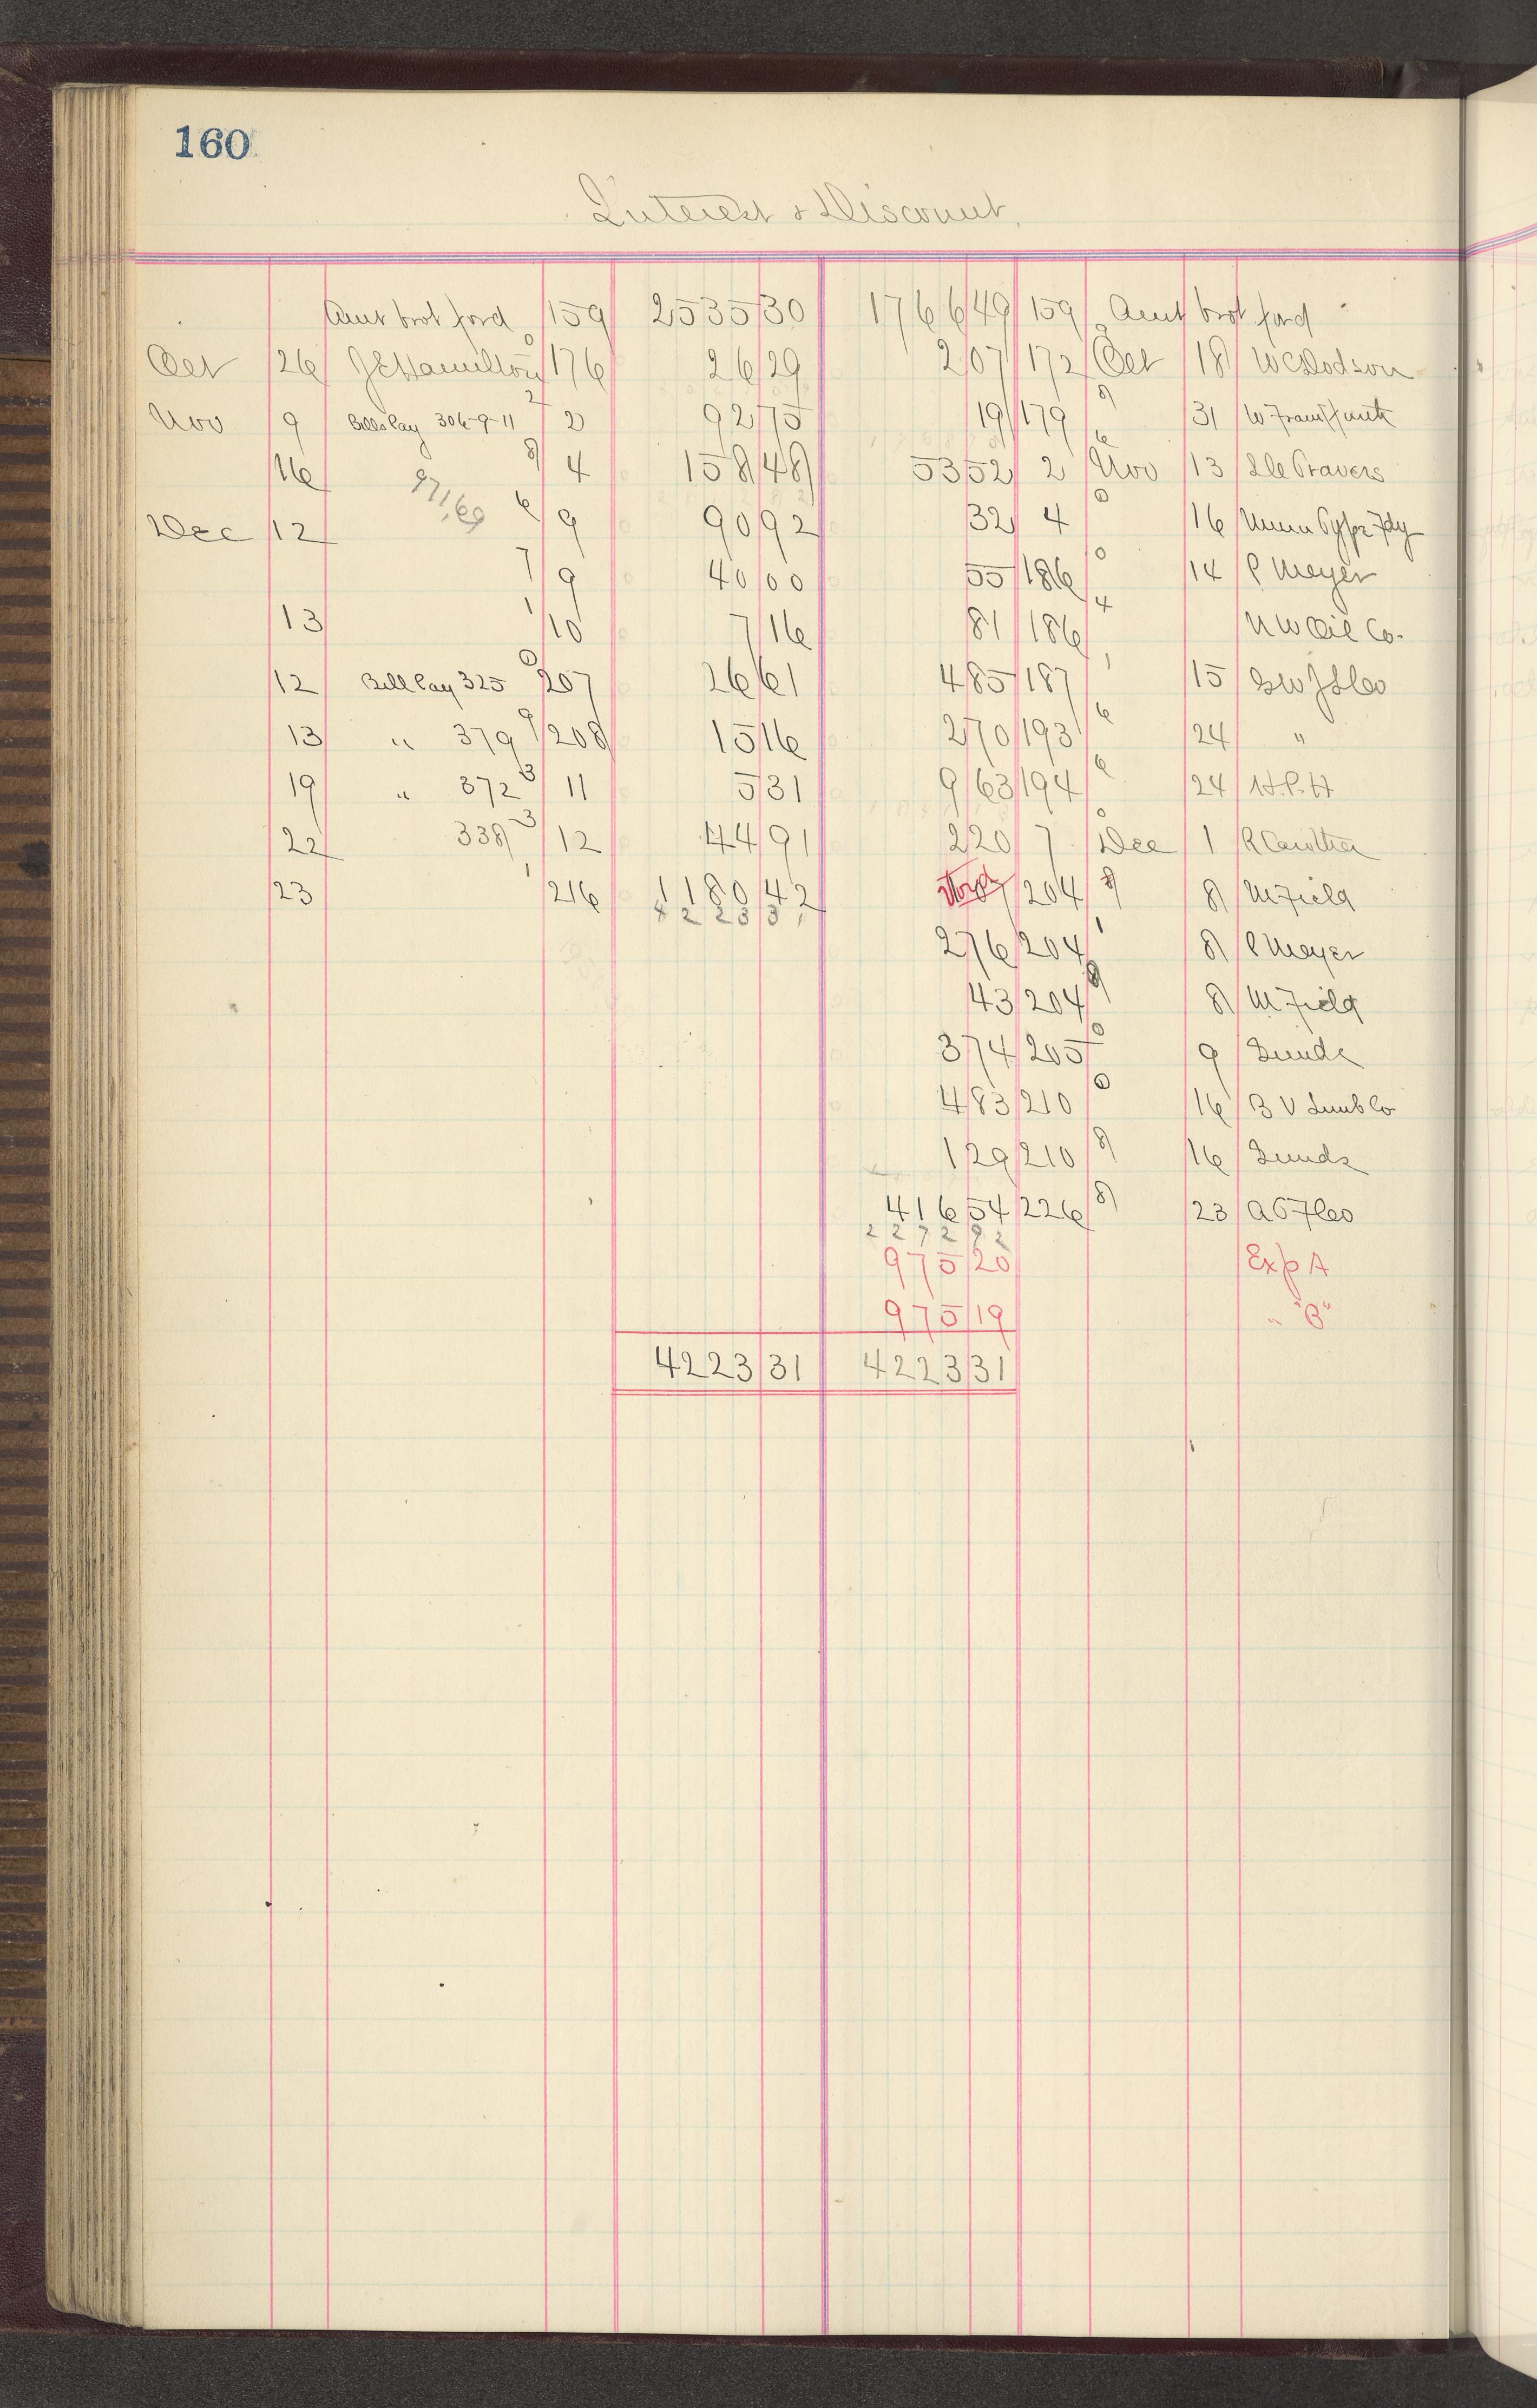 160
Interest & Discount
Amt brot ford 159 2535 30 1766 49 159 Amt brot ford
Oct 26 J E Hamilton 0 176 26 29 2 07 172 Oct 18 W C Dodson
Nov 9 Bills Pay 306-9-11 2 2 92 75 19 179 8 31 W
16 8 4 158 48 53 52 2 6 Nov 13 Travers
971,69
Dec 12 6 9 90 92 32 4 0 16 Type Fdy
7 9 40 00 55 186 0 14 P Meyer
13 1 10 7 16 81 186 4 N W Oil Co.
12 Bill Pay 325 0 207 26 61 4 85 187 1 15
13 " 379 9 208 15 16 2 70 193 6 24 "
19 " 372 3 11 5 31 9 63 194 6 24 H.P.H
22 338 3 12 44 91 2 20 7 0 Dec 1
23 1 216 1180 42 204 8 8 M Field
4223 31
2 76 204 1 8 P Meyer
43 204 8 8 M Field
3 74 205 0 9
4 83 210 0 16 B V Lumb Co
1 29 210 8 16
416 54 226 8 23
2272 92
975 20 Exp A
975 19 " "B"
4223 31 4223 31